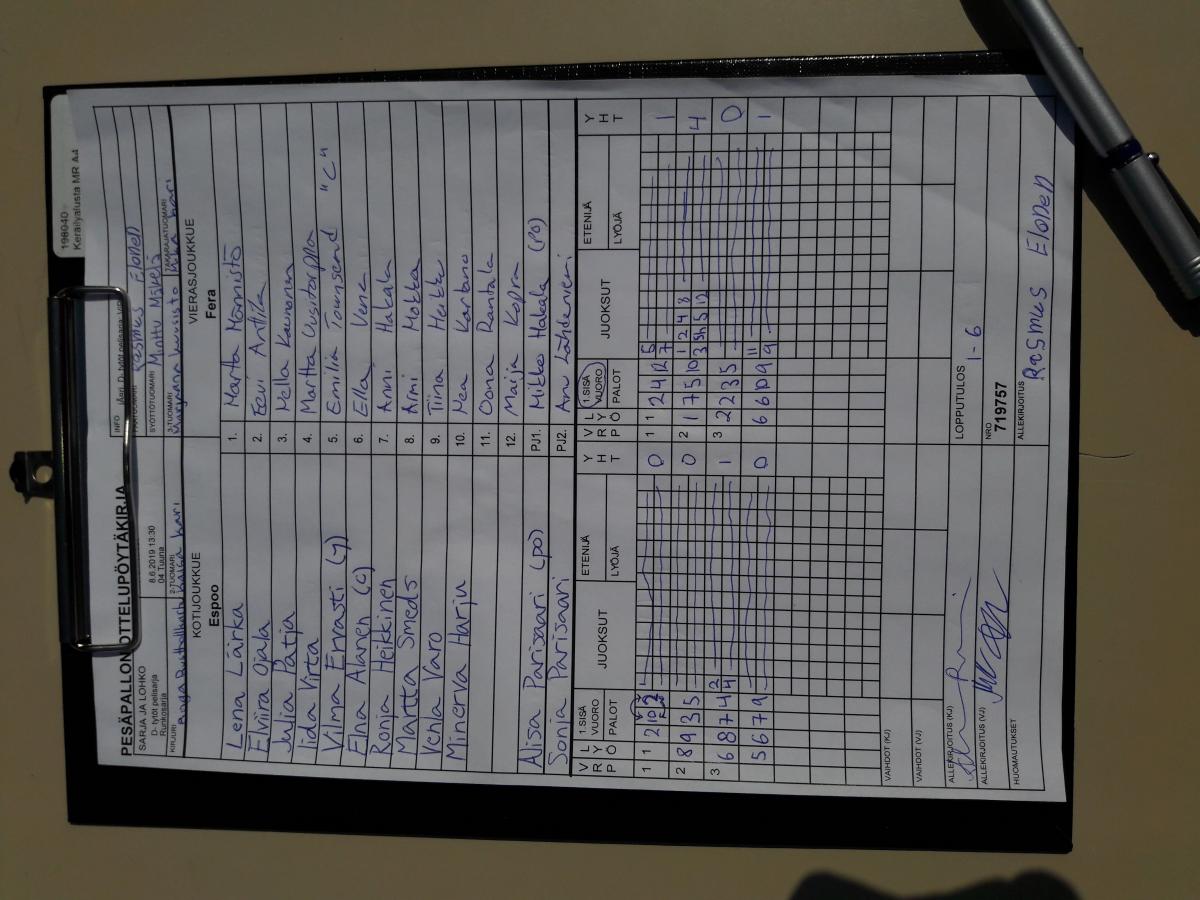 198040
Keräilyalusta MR A4
PESÄPALLON OTTELUPÖYTÄKIRJA
SARJA JA LOHKO
D- tytöt pelisarja
Runkosarja
8.6.2019 13:30
04 Tuuna
INFO
Rasmus Elonen
SYÖTTÖTUOMARI Minttu Mäkelä
KIRJURI
2-TUOMARI
3-TUOMARI
TAKARAJATUOMARI
KOTIJOUKKUE
VIERASJOUKKUE
Espoo
Fera
Lena Lärka 1. Martta Männistö
Elviira Ojala 2. Eevi Anttila
Julia Patja 3. Nella Kaunonen
Iida Virta 4. Martta Uusitorppa
Vilma Ervasti (j) 5. Emilia Townsend "C"
Elna Alanen (c) 6. Ella Vena
Ronja Heikkinen 7. Anni Hakala
Martta Smeds 8. Armi Mokka
Venla Varo 9. Tiina Heikku
Minerva Harju 10. Nea Kartano
11. Oona Rantala
12. Maija Kopra
Alisa Parisaari (po) PJ1. Mikko Hakala (PO)
Sonja Parisaari PJ2. Anu Lähdeniemi
V R P L Y Ö 1.SISÄ VUORO PALOT JUOKSUT ETENIJÄ LYÖJÄ Y H T V R P L Y Ö 1.SISÄ VUORO PALOT JUOKSUT ETENIJÄ LYÖJÄ Y H T
1 1 2 10 2 0 1 1 2 4 12 5 7 1
2 8 9 3 5 0 2 1 7 5 10 1 2 4 8 3 5h 5 12 4
3 6 8 7 4 2 4 1 3 2 2 3 5 0
5 6 7 9 0 6 6 10 9 11 9 1
VAIHDOT (KJ)
VAIHDOT (VJ)
ALLEKIRJOITUS (KJ)
LOPPUTULOS 1-6
ALLEKIRJOITUS (VJ)
NRO
719757
HUOMAUTUKSET
ALLEKIRJOITUS
Rasmus Elonen